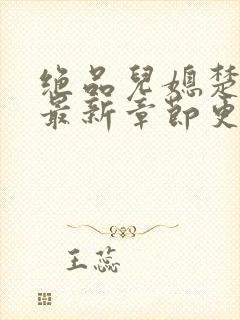 绝品儿媳楚
最新章节更
王蕊